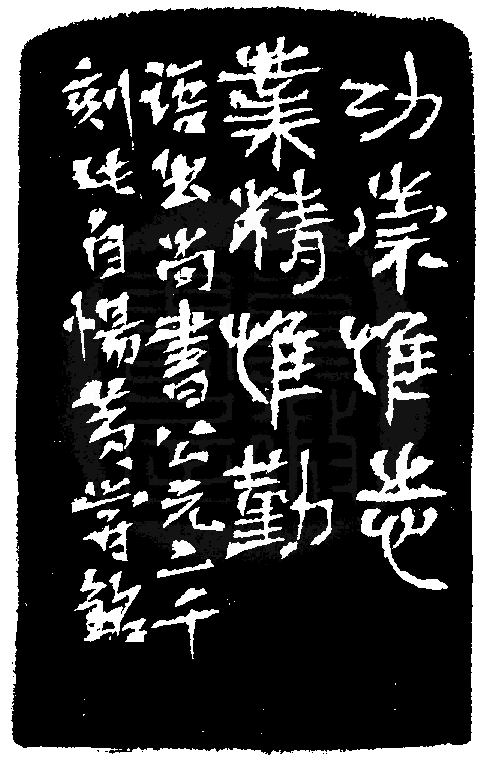 功崇惟志
業精惟勤
語出尚書公元二千
刻此自惕黃嘗銘